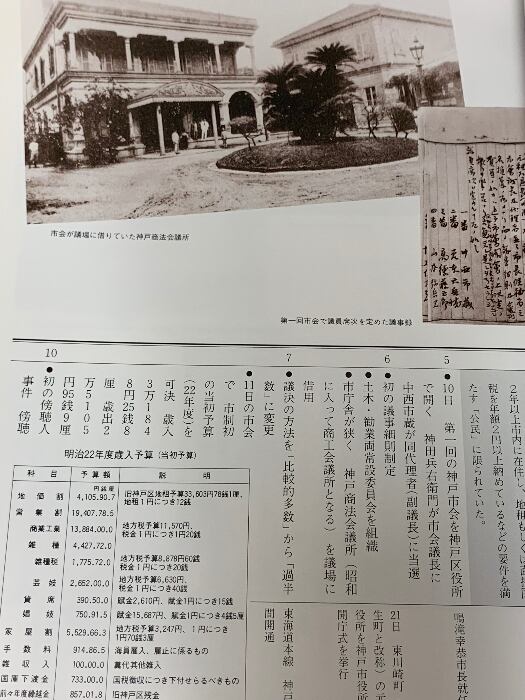 市会が議場に借りていた神戸商法会議所
第一回市会で議員席次を定めた議事録
一番
二番
三番
四番
2年以上市内に在住し、地租もしくは直接国
税を年額2円以上納めているなどの要件を満
たす「公民」に限られていた。
5
●10日 第一回の神戸市会を神戸区役所
で開く 神田兵右衛門が市会議長に
中西市蔵が同代理者(副議長)に当選
6
●初の議事細則制定
●土木・勧業両常設委員会を組織
●市庁舎が狭く 神戸商法会議所(昭和
に入って商工会議所となる)を議場に
借用
7
●議決の方法を「比較的多数」から「過半
数」に変更
●11日の市会
で 市制初
の当初予算
(22年度)を
可決 歳入
3万184
8円25銭8
厘 歳出2
万5105
円95銭9厘
10
●初の傍聴人
事件 傍聴
鳴滝幸恭市長就任
21日 東川崎町
生町と改称)の元
役所を神戸市役所
開庁式を挙行
東海道本線 神戸
間開通
明治22年度歳入予算(当初予算)
科目 予算額 説明
円銭厘
地価割 4,105.90.7 旧神戸区地租予算33,603円78銭1厘、
地租1円につき12銭
営業割 19,407.78.5
商業工業 13,884.00.0 地方税予算11,570円、
税金1円につき1円20銭
雑種 4,427.72.0
雑種税 1,775.72.0 地方税予算8,878円60銭
税金1円につき20銭
芸妓 2,652.00.0 地方税予算6,630円、
税金1円につき40銭
貸席 390.50.0 賦金2,610円、賦金1円につき15銭
娼妓 750.91.5 賦金15,687円、賦金1円につき4銭5厘
家屋割 5,529.66.3 地方税予算3,247円、1円につき
1円70銭3厘
手数料 914.86.5 海員雇入、雇止に係るもの
雑収入 100.00.0 糞代其他雑入
国庫下渡金 733.00.0 国税徴収につき下付せらるべきもの
前々年度繰越金 857.01.8 旧神戸区残金